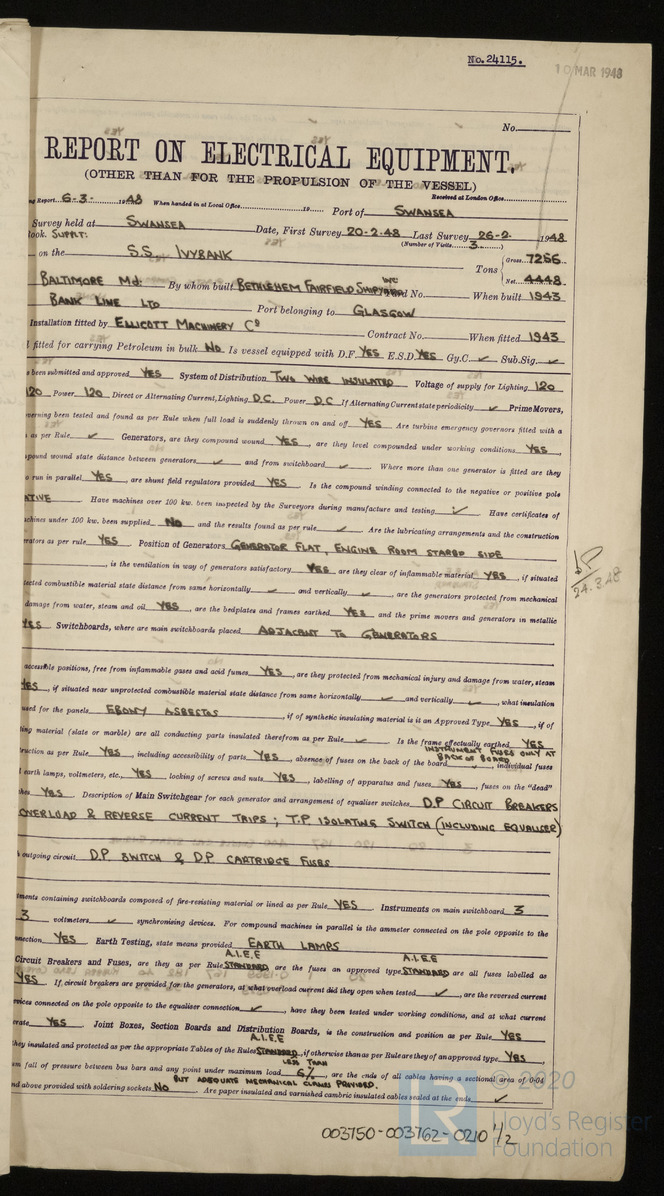 No. 24115.
10 MAR 1948
No.
REPORT ON ELECTRICAL EQUIPMENT.
(OTHER THAN FOR THE PROPULSION OF THE VESSEL)
Received at London Office
Report 6-3- 1948 When handed in at Local Office 19 Port of SWANSEA
Survey held at SWANSEA Date, First Survey 20-2-48 Last Survey 26-2- 1948
(Number of Visits 3)
Book. SUPPLT:
on the S.S. IVYBANK Tons Gross 7266 Net 4448
BALTIMORE Md. By whom built BETHLEHEM FAIRFIELD SHIPYARD INC No. When built 1943
BANK LINE LTD Port belonging to GLASGOW
Installation fitted by ELLICOTT MACHINERY Co Contract No. When fitted 1943
fitted for carrying Petroleum in bulk NO Is vessel equipped with D.F. YES E.S.D. YES Gy.C. ✓ Sub.Sig. ✓
been submitted and approved YES System of Distribution TWO WIRE INSULATED Voltage of supply for Lighting 120
120 Power 120 Direct or Alternating Current, Lighting D.C. Power D.C If Alternating Current state periodicity ✓ Prime Movers,
governing been tested and found as per Rule when full load is suddenly thrown on and off YES Are turbine emergency governors fitted with a
as per Rule ✓ Generators, are they compound wound YES, are they level compounded under working conditions YES,
compound wound state distance between generators ✓ and from switchboard ✓ Where more than one generator is fitted are they
run in parallel YES, are shunt field regulators provided YES Is the compound winding connected to the negative or positive pole
Have machines over 100 kw. been inspected by the Surveyors during manufacture and testing ✓ Have certificates of
machines under 100 kw. been supplied NO and the results found as per rule ✓ Are the lubricating arrangements and the construction
generators as per rule YES Position of Generators GENERATOR FLAT, ENGINE ROOM STARBD SIDE
, is the ventilation in way of generators satisfactory YES are they clear of inflammable material YES, if situated
combustible material state distance from same horizontally ✓ and vertically ✓, are the generators protected from mechanical
damage from water, steam and oil YES, are the bedplates and frames earthed YES and the prime movers and generators in metallic
YES Switchboards, where are main switchboards placed ADJACENT TO GENERATORS
JP
24.3.48
accessible positions, free from inflammable gases and acid fumes YES, are they protected from mechanical injury and damage from water, steam
YES, if situated near unprotected combustible material state distance from same horizontally ✓ and vertically ✓, what insulation
used for the panels EBONY ASBESTOS, if of synthetic insulating material is it an Approved Type YES, if of
material (slate or marble) are all conducting parts insulated therefrom as per Rule ✓ Is the frame effectually earthed YES
INSTRUMENT FUSES ONLY AT BACK OF BOARD
construction as per Rule YES, including accessibility of parts YES, absence of fuses on the back of the board, individual fuses
earth lamps, voltmeters, etc., YES locking of screws and nuts YES, labelling of apparatus and fuses YES, fuses on the "dead"
YES Description of Main Switchgear for each generator and arrangement of equaliser switches D.P CIRCUIT BREAKERS
OVERLOAD & REVERSE CURRENT TRIPS; T.P ISOLATING SWITCH (INCLUDING EQUALISER)
outgoing circuit D.P SWITCH & D.P. CARTRIDGE FUSES
containing switchboards composed of fire-resisting material or lined as per Rule YES Instruments on main switchboard 3
3 voltmeters ✓ synchronising devices. For compound machines in parallel is the ammeter connected on the pole opposite to the
YES Earth Testing, state means provided EARTH LAMPS
A.I.E.E A.I.E.E
Circuit Breakers and Fuses, are they as per Rule STANDARD are the fuses an approved type STANDARD are all fuses labelled as
YES If circuit breakers are provided for the generators, at what overload current did they open when tested ✓, are the reversed current
devices connected on the pole opposite to the equaliser connection ✓, have they been tested under working conditions, and at what current
YES Joint Boxes, Section Boards and Distribution Boards, is the construction and position as per Rule YES
A.I.E.E
they insulated and protected as per the appropriate Tables of the Rules STANDARD, if otherwise than as per Rule are they of an approved type YES,
LESS THAN
fall of pressure between bus bars and any point under maximum load 6%, are the ends of all cables having a sectional area of 0·04
BUT ADEQUATE MECHANICAL CLAMPS PROVIDED.
and above provided with soldering sockets NO Are paper insulated and varnished cambric insulated cables sealed at the ends ✓
© 2020
LR Lloyd's Register
Foundation
003750-003762-0210 1/2